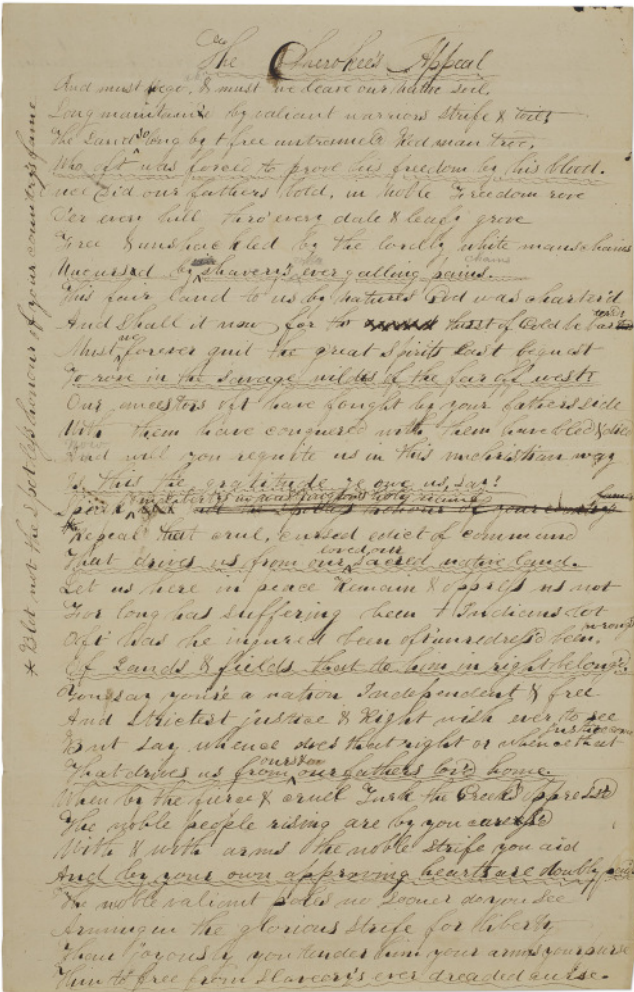 The Cherokee's Appeal
And must we go, & must we leave our native soil,
Long maintain'd by valiant warriors strife & toils
The Land so long by free untrammel'd Red man trod,
Who oft was forced to prove his freedom by his blood.
not did our fathers bold, in noble Freedom rove
O'er every hill thro' every dale & leafy grove
Free & unshackled by the lordly white mans chains
chains
Uncursed by slavery's ever galling pains.
This fair land to us by natures God was charter'd
And shall it now for the thirst of Gold be
Must we forever quit the great Spirits last bequest
To rove in the savage wilds of the far off west
Our ancestors oft have fought by your fathers side
With them have conquered with them have bled & died
now
And will you requite us in this unchristian way
Is this the gratitude ye owe us, say!
not the honour of your
Repeal that cruel, cursed edict of command
loved our
That drives us from our sacred native land.
Let us here in peace Remain & oppress us not
For long has suffering been Indians lot
Oft has he injured been oft unredress'd been
wrong
Of Lands & fields that do him in right belong
You say you're a nation Independent & free
And strictest justice & Right wish ever to see
But say whence does that right or whence that
justice come
That drives us from our fathers lov'd home
When by the fierce & cruel Turk the Greek's oppress'd
The noble people rising are by you caress'd
With & with arms the noble strife you aid
And by your own approving hearts are doubly paid
The noble valiant poles no sooner do you see
Arming in the glorious strife for liberty
Than joyously you tender him your arms your purse
Him to free from slavery's ever dreaded curse.
* Blot not the spotless honour of your country's fame